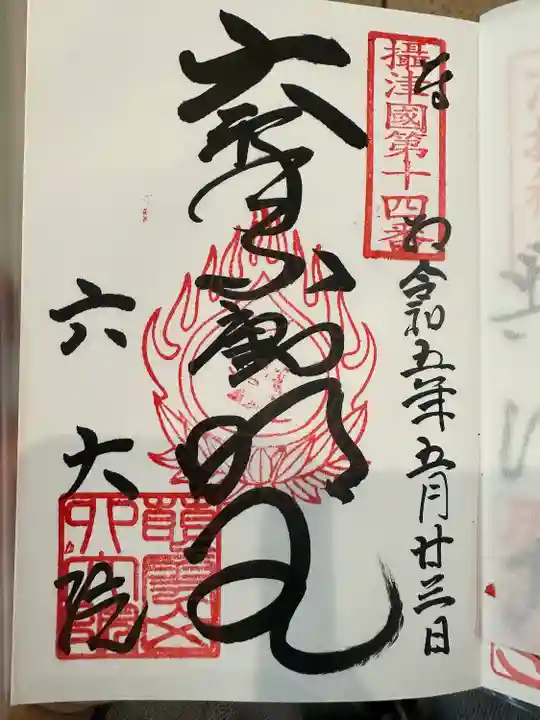 攝津國第十四番
奉拝 令和五年五月廿三日
大聖不動明王
六大院